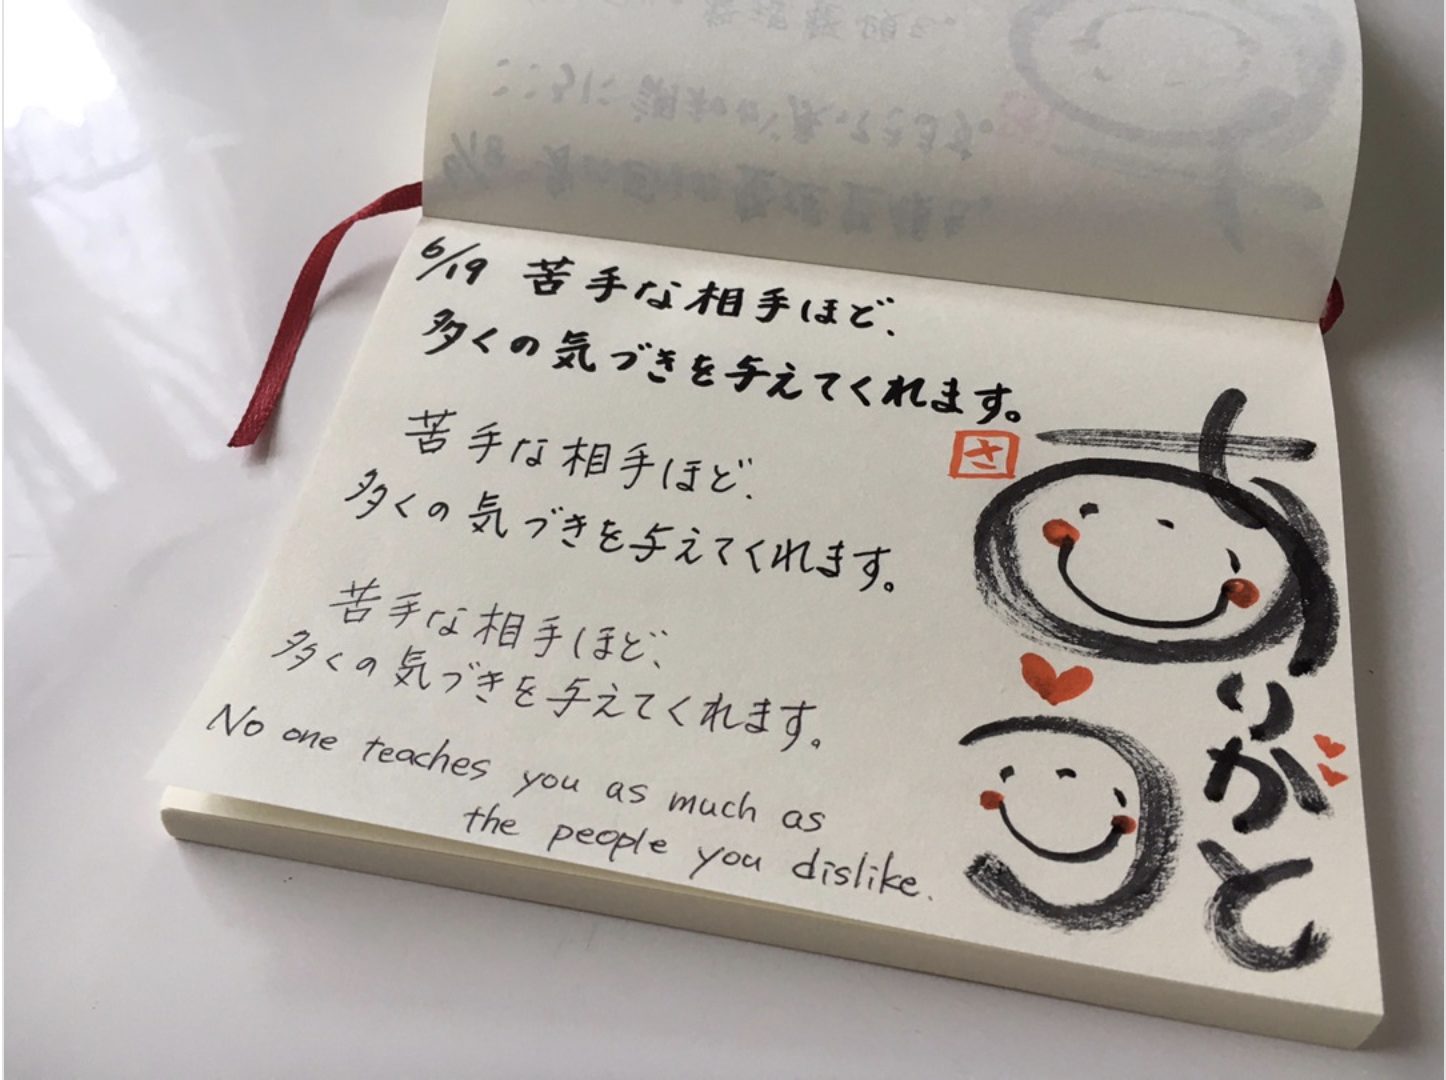 6/19 苦手な相手ほど、
多くの気づきを与えてくれます。
苦手な相手ほど、
多くの気づきを与えてくれます。
苦手な相手ほど、
多くの気づきを与えてくれます。
No one teaches you as much as
the people you dislike.
さ
ありがと
う